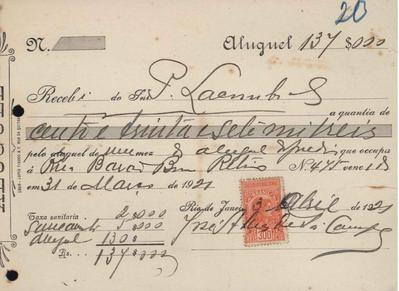 20
N. Aluguel 137$000
Recebi do Snr. P. Lacombe
a quantia de
cento e trinta e sete mil reis
pelo aluguel de um mez d aluguel que occupa
á Rua Barão Bom Retiro N. 475 vencido
em 31 de Março de 1921
Rio de Janeiro, 2 Abril de 1921
Taxa sanitaria 2$000
5$000
aluguel 130$
Rs. 137$000
José
300